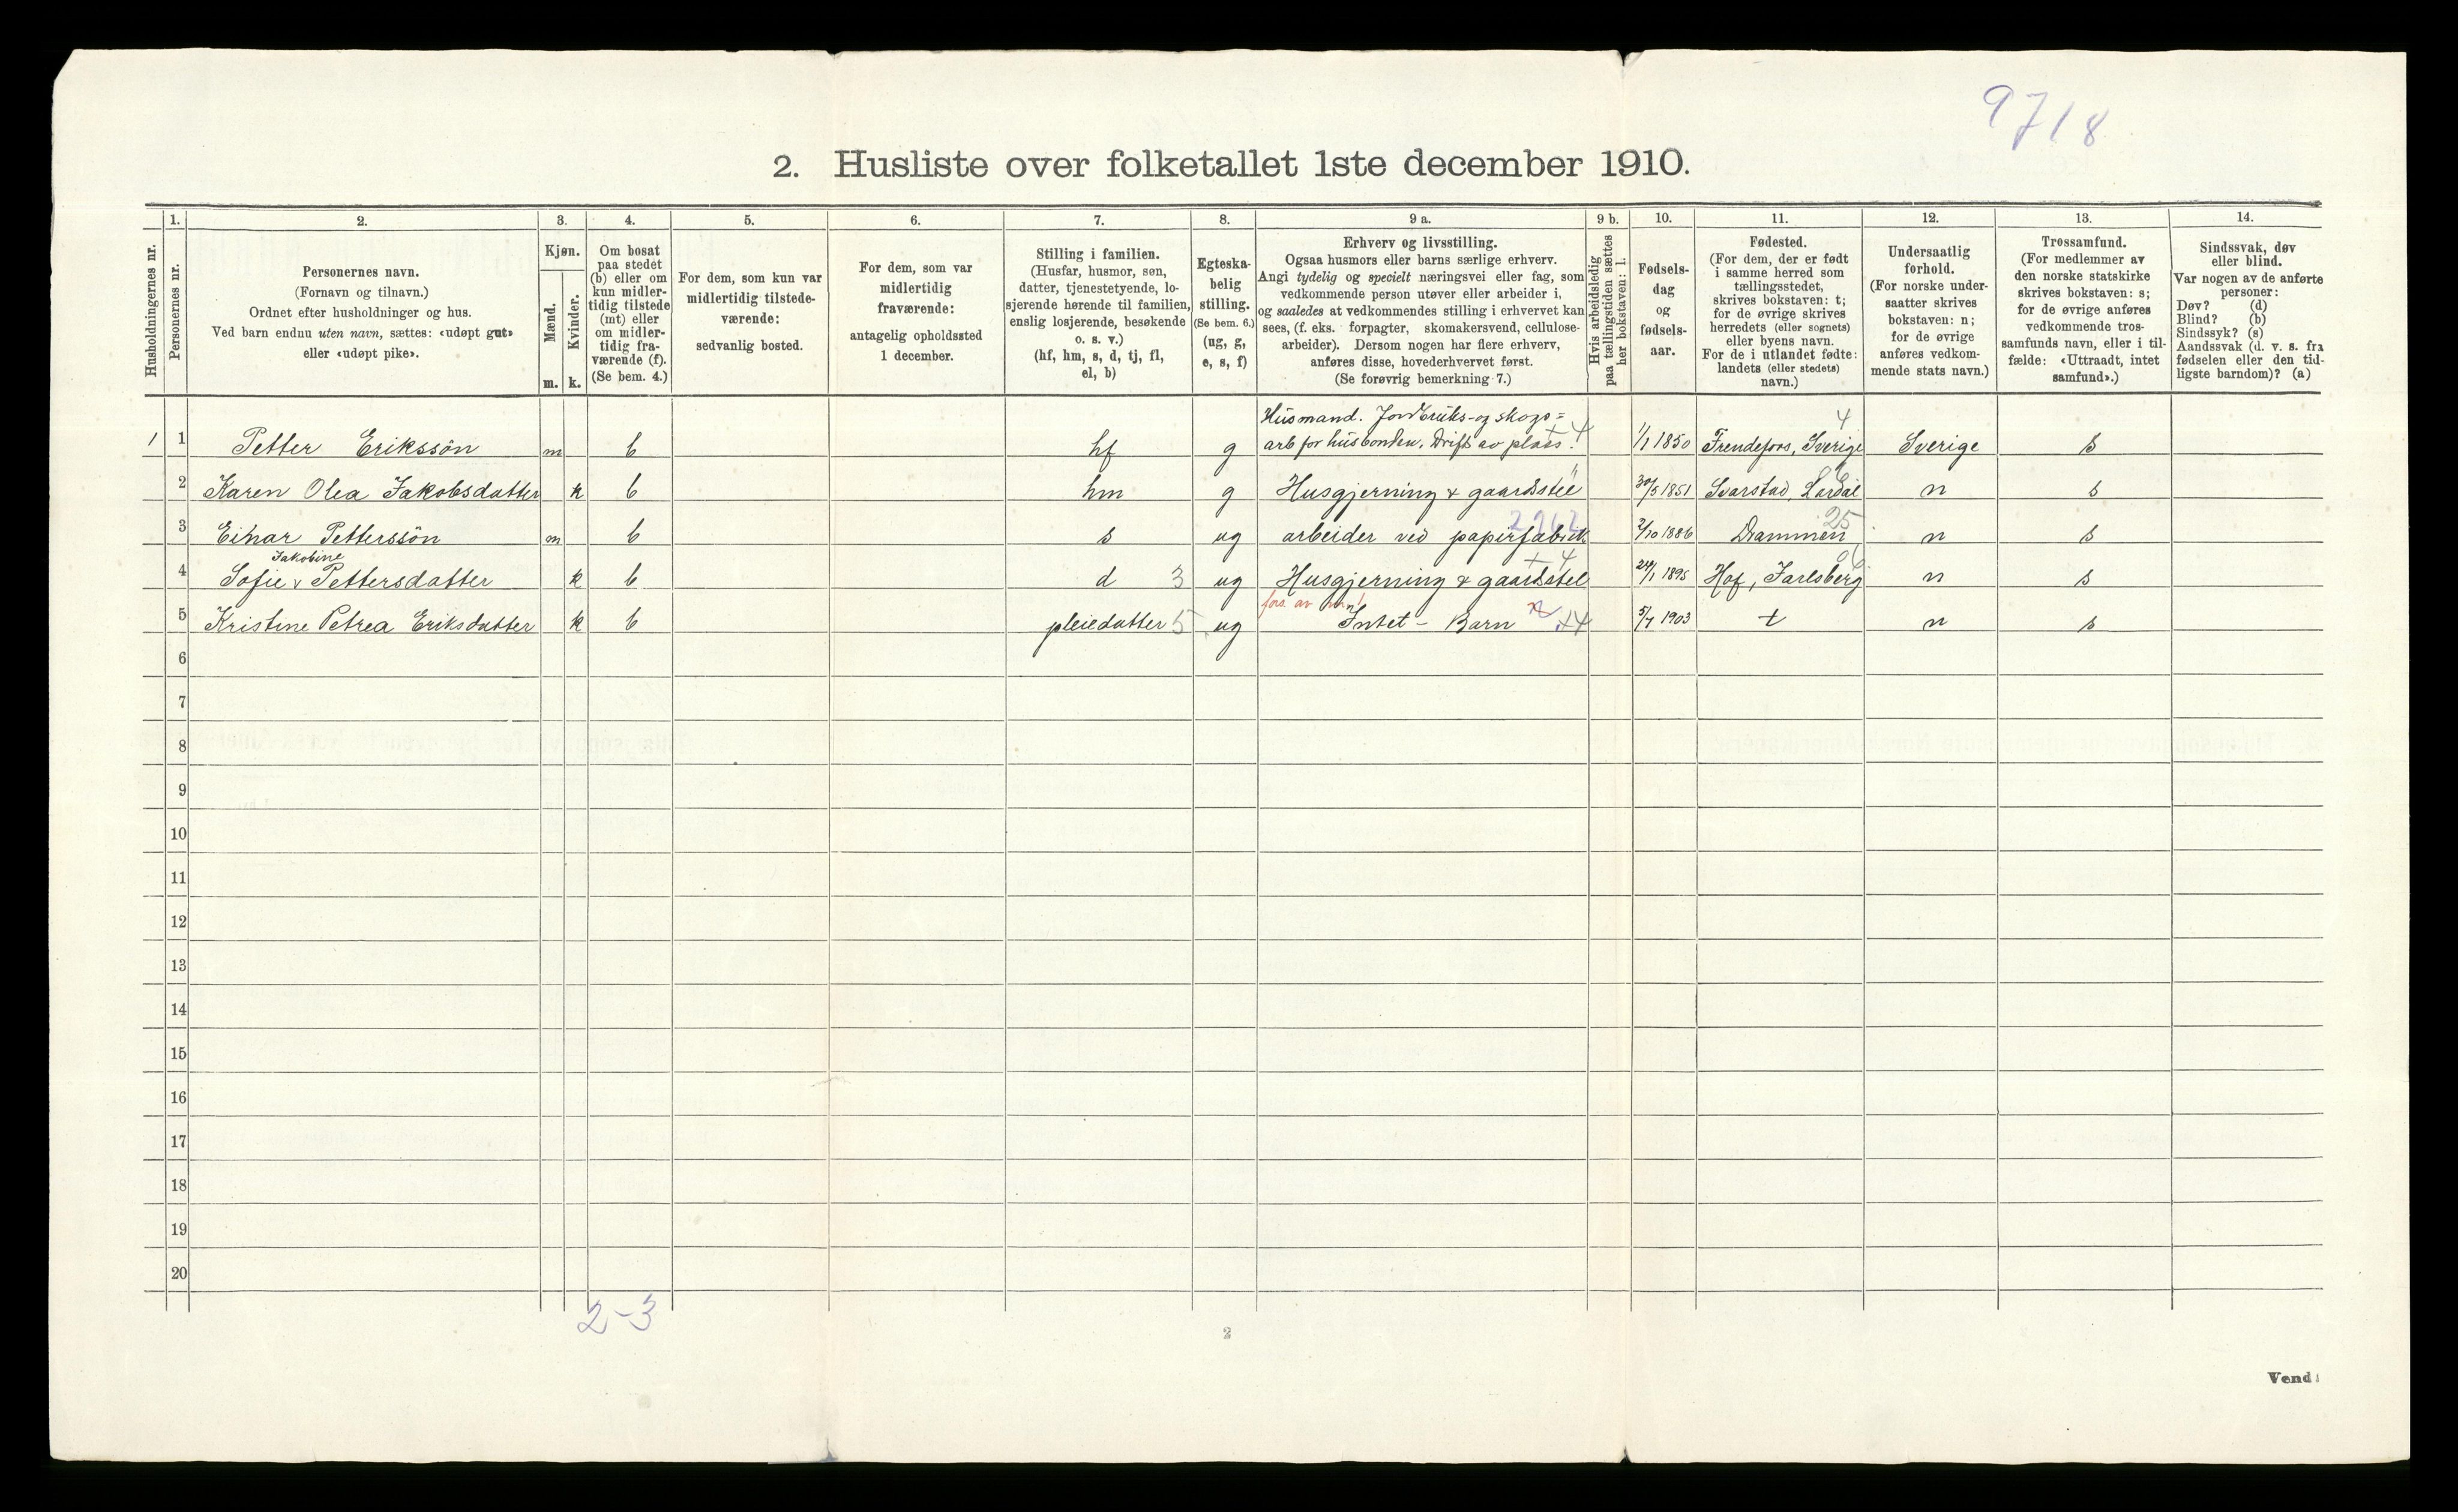 9718
2. Husliste over folketallet 1ste december 1910.
Husholdningernes nr.
1.
Personernes nr.
2.
Personernes navn.
(Fornavn og tilnavn.)
Ordnet efter husholdninger og hus.
Ved barn endnu uten navn, sættes: «udøpt gut»
eller «udøpt pike».
3.
Kjøn.
Mænd.
Kvinder.
m.
k.
4.
Om bosat
paa stedet
(b) eller om
kun midler-
tidig tilstede
(mt) eller
om midler-
tidig fra-
værende (f).
(Se bem. 4.)
5.
For dem, som kun var
midlertidig tilstede-
værende:
sedvanlig bosted.
6.
For dem, som var
midlertidig
fraværende:
antagelig opholdssted
1 december.
7.
Stilling i familien.
(Husfar, husmor, søn,
datter, tjenestetyende, lo-
sjerende hørende til familien,
enslig losjerende, besøkende
o. s. v.)
(hf, hm, s, d, tj, fl,
el, b)
8.
Egteska-
belig
stilling.
(Se bem. 6.)
(ug, g,
e, s, f)
9 a.
Erhverv og livsstilling.
Ogsaa husmors eller barns særlige erhverv.
Angi tydelig og specielt næringsvei eller fag, som
vedkommende person utøver eller arbeider i,
og saaledes at vedkommendes stilling i erhvervet kan
sees, (f. eks. forpagter, skomakersvend, cellulose-
arbeider). Dersom nogen har flere erhverv,
anføres disse, hovederhvervet først.
(Se forøvrig bemerkning 7.)
9 b.
Hvis arbeidsledig
paa tællingstiden sættes
her bokstaven: l.
10.
Fødsels-
dag
og
fødsels-
aar.
11.
Fødested.
(For dem, der er født
i samme herred som
tællingsstedet,
skrives bokstaven: t;
for de øvrige skrives
herredets (eller sognets)
eller byens navn.
For de i utlandet fødte:
landets (eller stedets)
navn.)
12.
Undersaatlig
forhold.
(For norske under-
saatter skrives
bokstaven: n;
for de øvrige
anføres vedkom-
mende stats navn.)
13.
Trossamfund.
(For medlemmer av
den norske statskirke
skrives bokstaven: s;
for de øvrige anføres
vedkommende tros-
samfunds navn, eller i til-
fælde: «Uttraadt, intet
samfund».)
14.
Sindssvak, døv
eller blind.
Var nogen av de anførte
personer:
Døv? (d)
Blind? (b)
Sindssyk? (s)
Aandssvak (d. v. s. fra
fødselen eller den tid-
ligste barndom)? (a)
Husmand. Jordbruks- og skogs= 4
1 1 Petter Erikssön m b hf g arb for husbonden. Drift av plass. +4 1/1 1850 Frendefors, Sverige Sverige s
2 Karen Olea Jakobsdatter k b hm g Husgjerning & gaardsstel 30/5 1851 Svarstad, Lardal 6 n s
3 Einar Petterssön m b s ug arbeider ved papirfabrik 2/10 1886 Drammen 25 n s
Jakobine + 4
4 Sofie v Pettersdatter k b d 3 ug Husgjerning & gaardsstel 24/1 1895 Hof, Jarlsberg 6 n s
fors. av
5 Kristine Petrea Eriksdatter k b pleiedatter 5 ug Intet - Barn +4 5/7 1903 t n s
6
7
8
9
10
11
12
13
14
15
16
17
18
19
20
2-3
2
Vend!